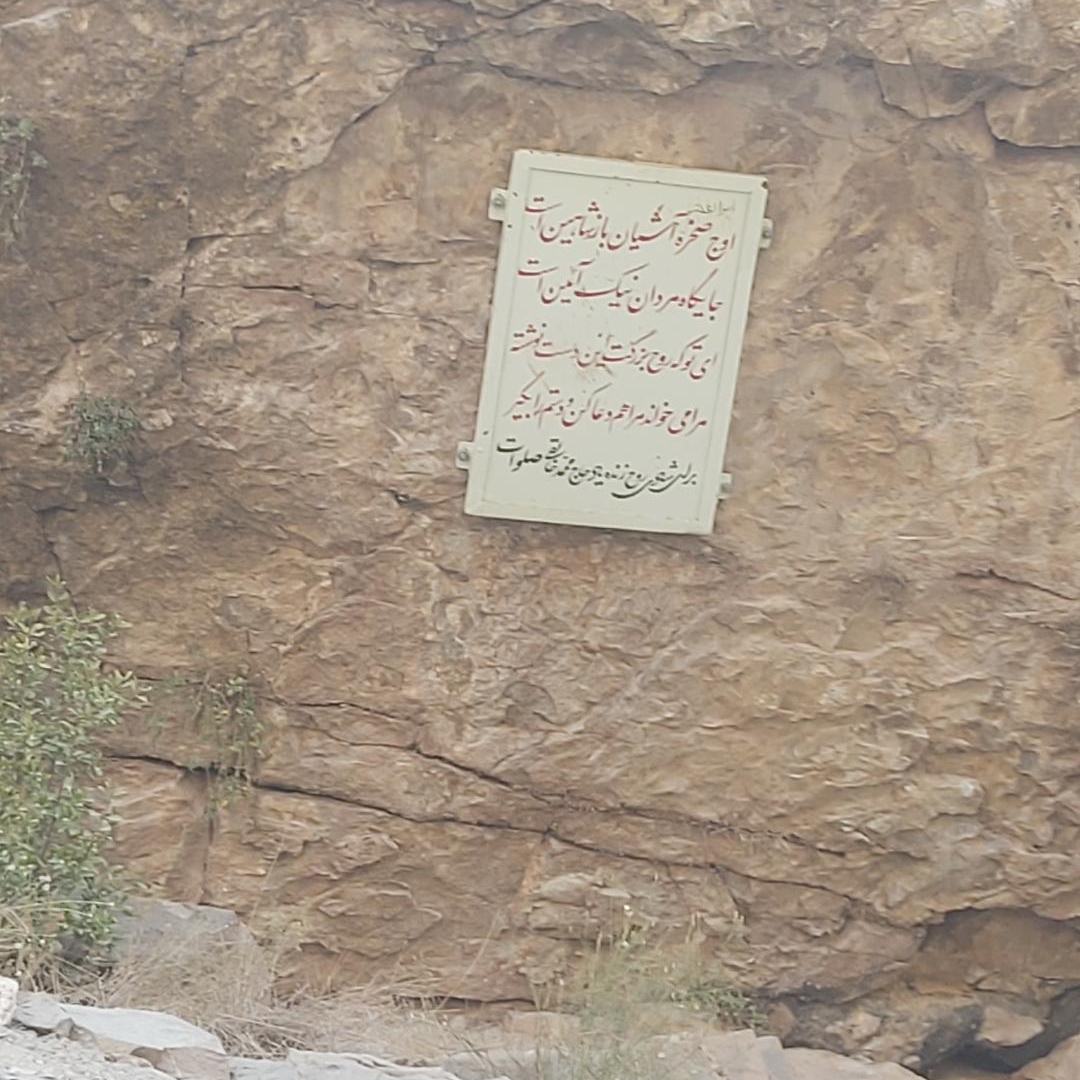 اوج صخره آشیان باز شاهین است
جایگاه مردان نیک آئین است
ای تو که روح بزرگت این دست نوشته
مرا می خواند مرا هم دعا کن و دستم را بگیر
برای شادی روح زنده یاد حاج محمد صلوات